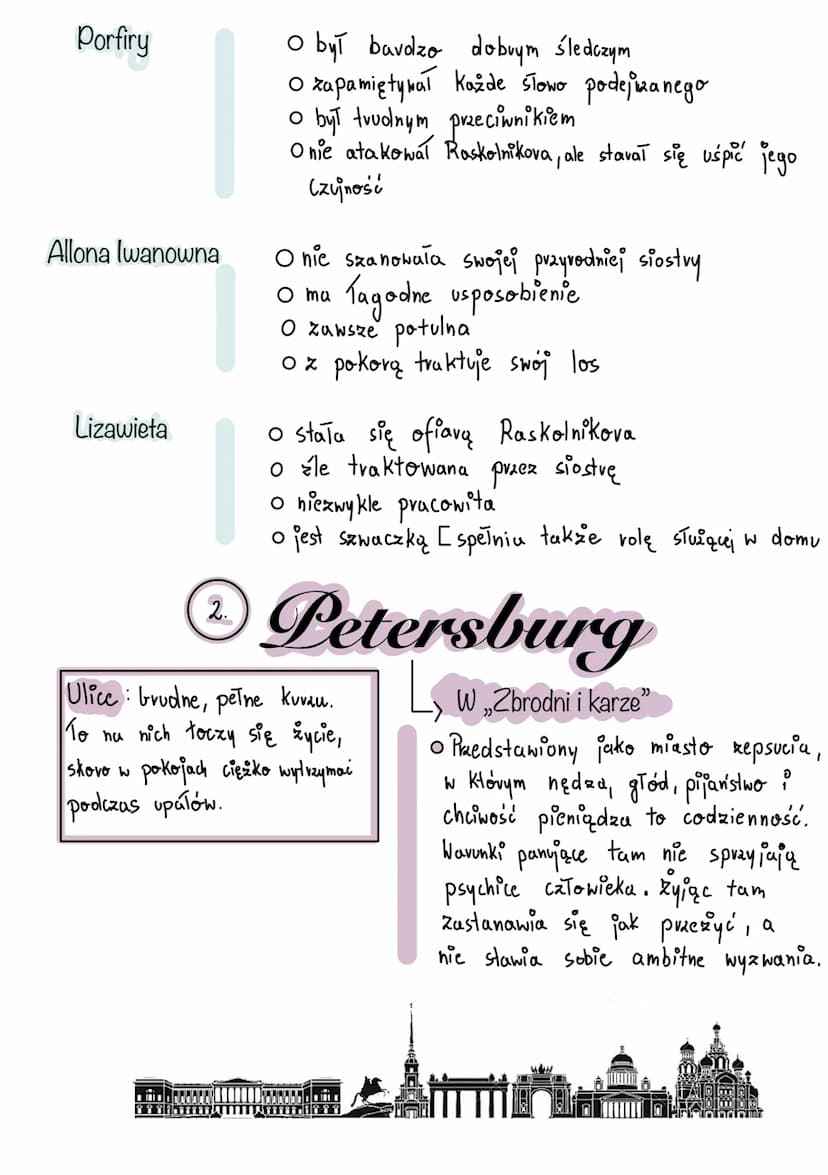 Porfiry
○ był bardzo dobrym śledczym
○ zapamiętywał każde słowo podejrzanego
○ był trudnym przeciwnikiem
○ nie atakował Raskolnikova, ale starał się uśpić jego
czujność
Allona Iwanowna
○ nie szanowała swojej przyrodniej siostry
○ ma łagodne usposobienie
○ zawsze potulna
○ z pokorą traktuje swój los
Lizawieta
○ stała się ofiarą Raskolnikova
○ źle traktowana przez siostrę
○ niezwykle pracowita
○ jest szwaczką [ spełnia także rolę służącej w domu
2. Petersburg
Ulice: brudne, pełne kurzu.
To na nich toczy się życie,
skoro w pokojach ciężko wytrzymać
podczas upałów.
W „Zbrodni i karze”
Przedstawiony jako miasto zepsucia,
w którym nędza, głód, pijaństwo i
chciwość pieniądza to codzienność.
Warunki panujące tam nie sprzyjają
psychice człowieka. Żyjąc tam
zastanawia się jak przeżyć, a
nie stawia sobie ambitne wyzwania.